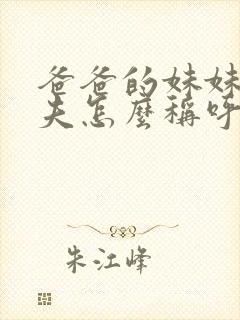 爸爸的妹妹
夫怎麼稱呼
朱江峰